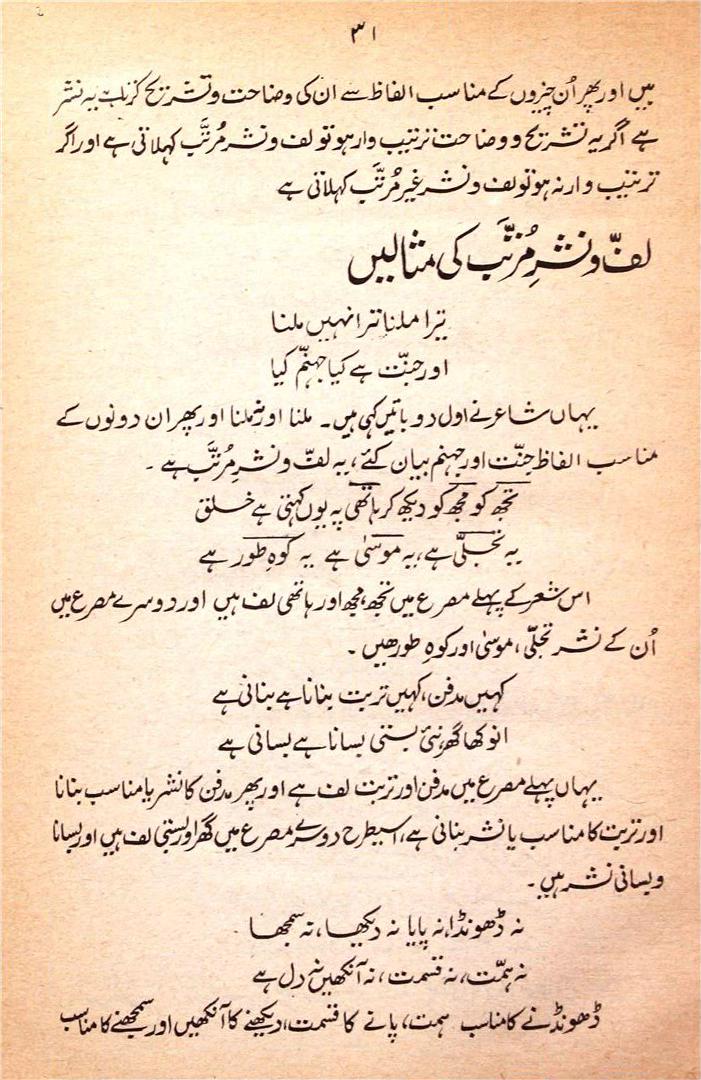 ۳۱
ہیں اور پھر اُن چیزوں کے مناسب الفاظ سے ان کی وضاحت و تشریح کریں یہ نشر
ہے اگر یہ تشریح و وضاحت ترتیب وار ہو تو لف و نشر مُرتَّب کہلاتی ہے اور اگر
ترتیب وار نہ ہو تو لف و نشر غیر مُرتَّب کہلاتی ہے
لفّ و نشرِ مُرتَّب کی مثالیں
تیرا ملنا ترا نہیں ملنا
اور جنّت ہے کیا جہنّم کیا
یہاں شاعر نے اول دو باتیں کہی ہیں۔ ملنا اور نہ ملنا اور پھر ان دونوں کے
مناسب الفاظ جنّت اور جہنم بیان کئے، یہ لفّ و نشرِ مُرتَّب ہے۔
تجھ کو مجھ کو دیکھ کر ہاتھی پہ یوں کہتی ہے خلق
یہ تجلّی ہے، یہ موسیٰ ہے یہ کوہِ طور ہے
اس شعر کے پہلے مصرع میں تجھ، مجھ اور ہاتھی لف ہیں اور دوسرے مصرع میں
اُن کے نشر تجلّی، موسیٰ اور کوہِ طور ہیں۔
کہیں مدفن، کہیں تربت بنانا ہے بنانی ہے
انوکھا گھر، نئی بستی بسانا ہے بسانی ہے
یہاں پہلے مصرع میں مدفن اور تربت لف ہے اور پھر مدفن کا نشر یا مناسب بنانا
اور تربت کا مناسب یا نشر بنانی ہے، اسیطرح دوسرے مصرع میں گھر اور بستی لف ہیں اور بسانا
و بسانی نشر ہیں۔
نہ ڈھونڈا، نہ پایا نہ دیکھا، نہ سمجھا
نہ ہمّت، نہ قسمت، نہ آنکھیں نہ دل ہے
ڈھونڈنے کا مناسب ہمت، پانے کا قسمت، دیکھنے کا آنکھیں اور سمجھنے کا مناسب